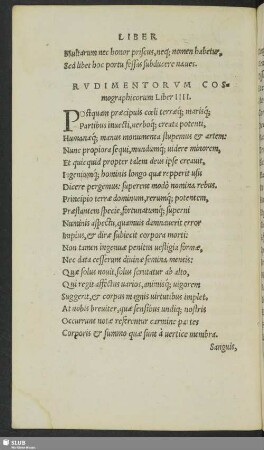 LIBER
Multarum nec honor priscus, neq; nomen habetur,
Sed libet hoc portu fessas subducere naues.
RVDIMENTORVM COS-
mographicorum Liber IIII.
POstquam præcipuis cœli terræq; marisq;
Partibus inuecti, uerboq; creata potenti,
Humanæq; manus monumenta stupemus & artem:
Nunc propiora sequi, mundumq; uidere minorem,
Et quicquid propter talem deus ipse creauit,
Ingeniumq; hominis longo quæ repperit usu
Dicere pergemus: superent modò nomina rebus.
Principio terræ dominum, rerumq; potentem,
Præstantem specie, fortunatumq; superni
Numinis aspectu, quamuis damnauerit error
Impius, & diræ subiecit corpora morti:
Non tamen ingenuæ penitus uestigia formæ,
Nec data cesserunt diuinæ semina mentis:
Quæ solus nouit, solus scrutatur ab alto,
Qui regit affectus uarios, animisq; uigorem
Suggerit, & corpus magnis uirtutibus implet.
At uobis breuiter, quæ sensibus undiq; nostris
Occurrunt notæ referentur carmine partes
Corporis & summo quæ sunt à uertice membra.
Sanguis,
SLUB